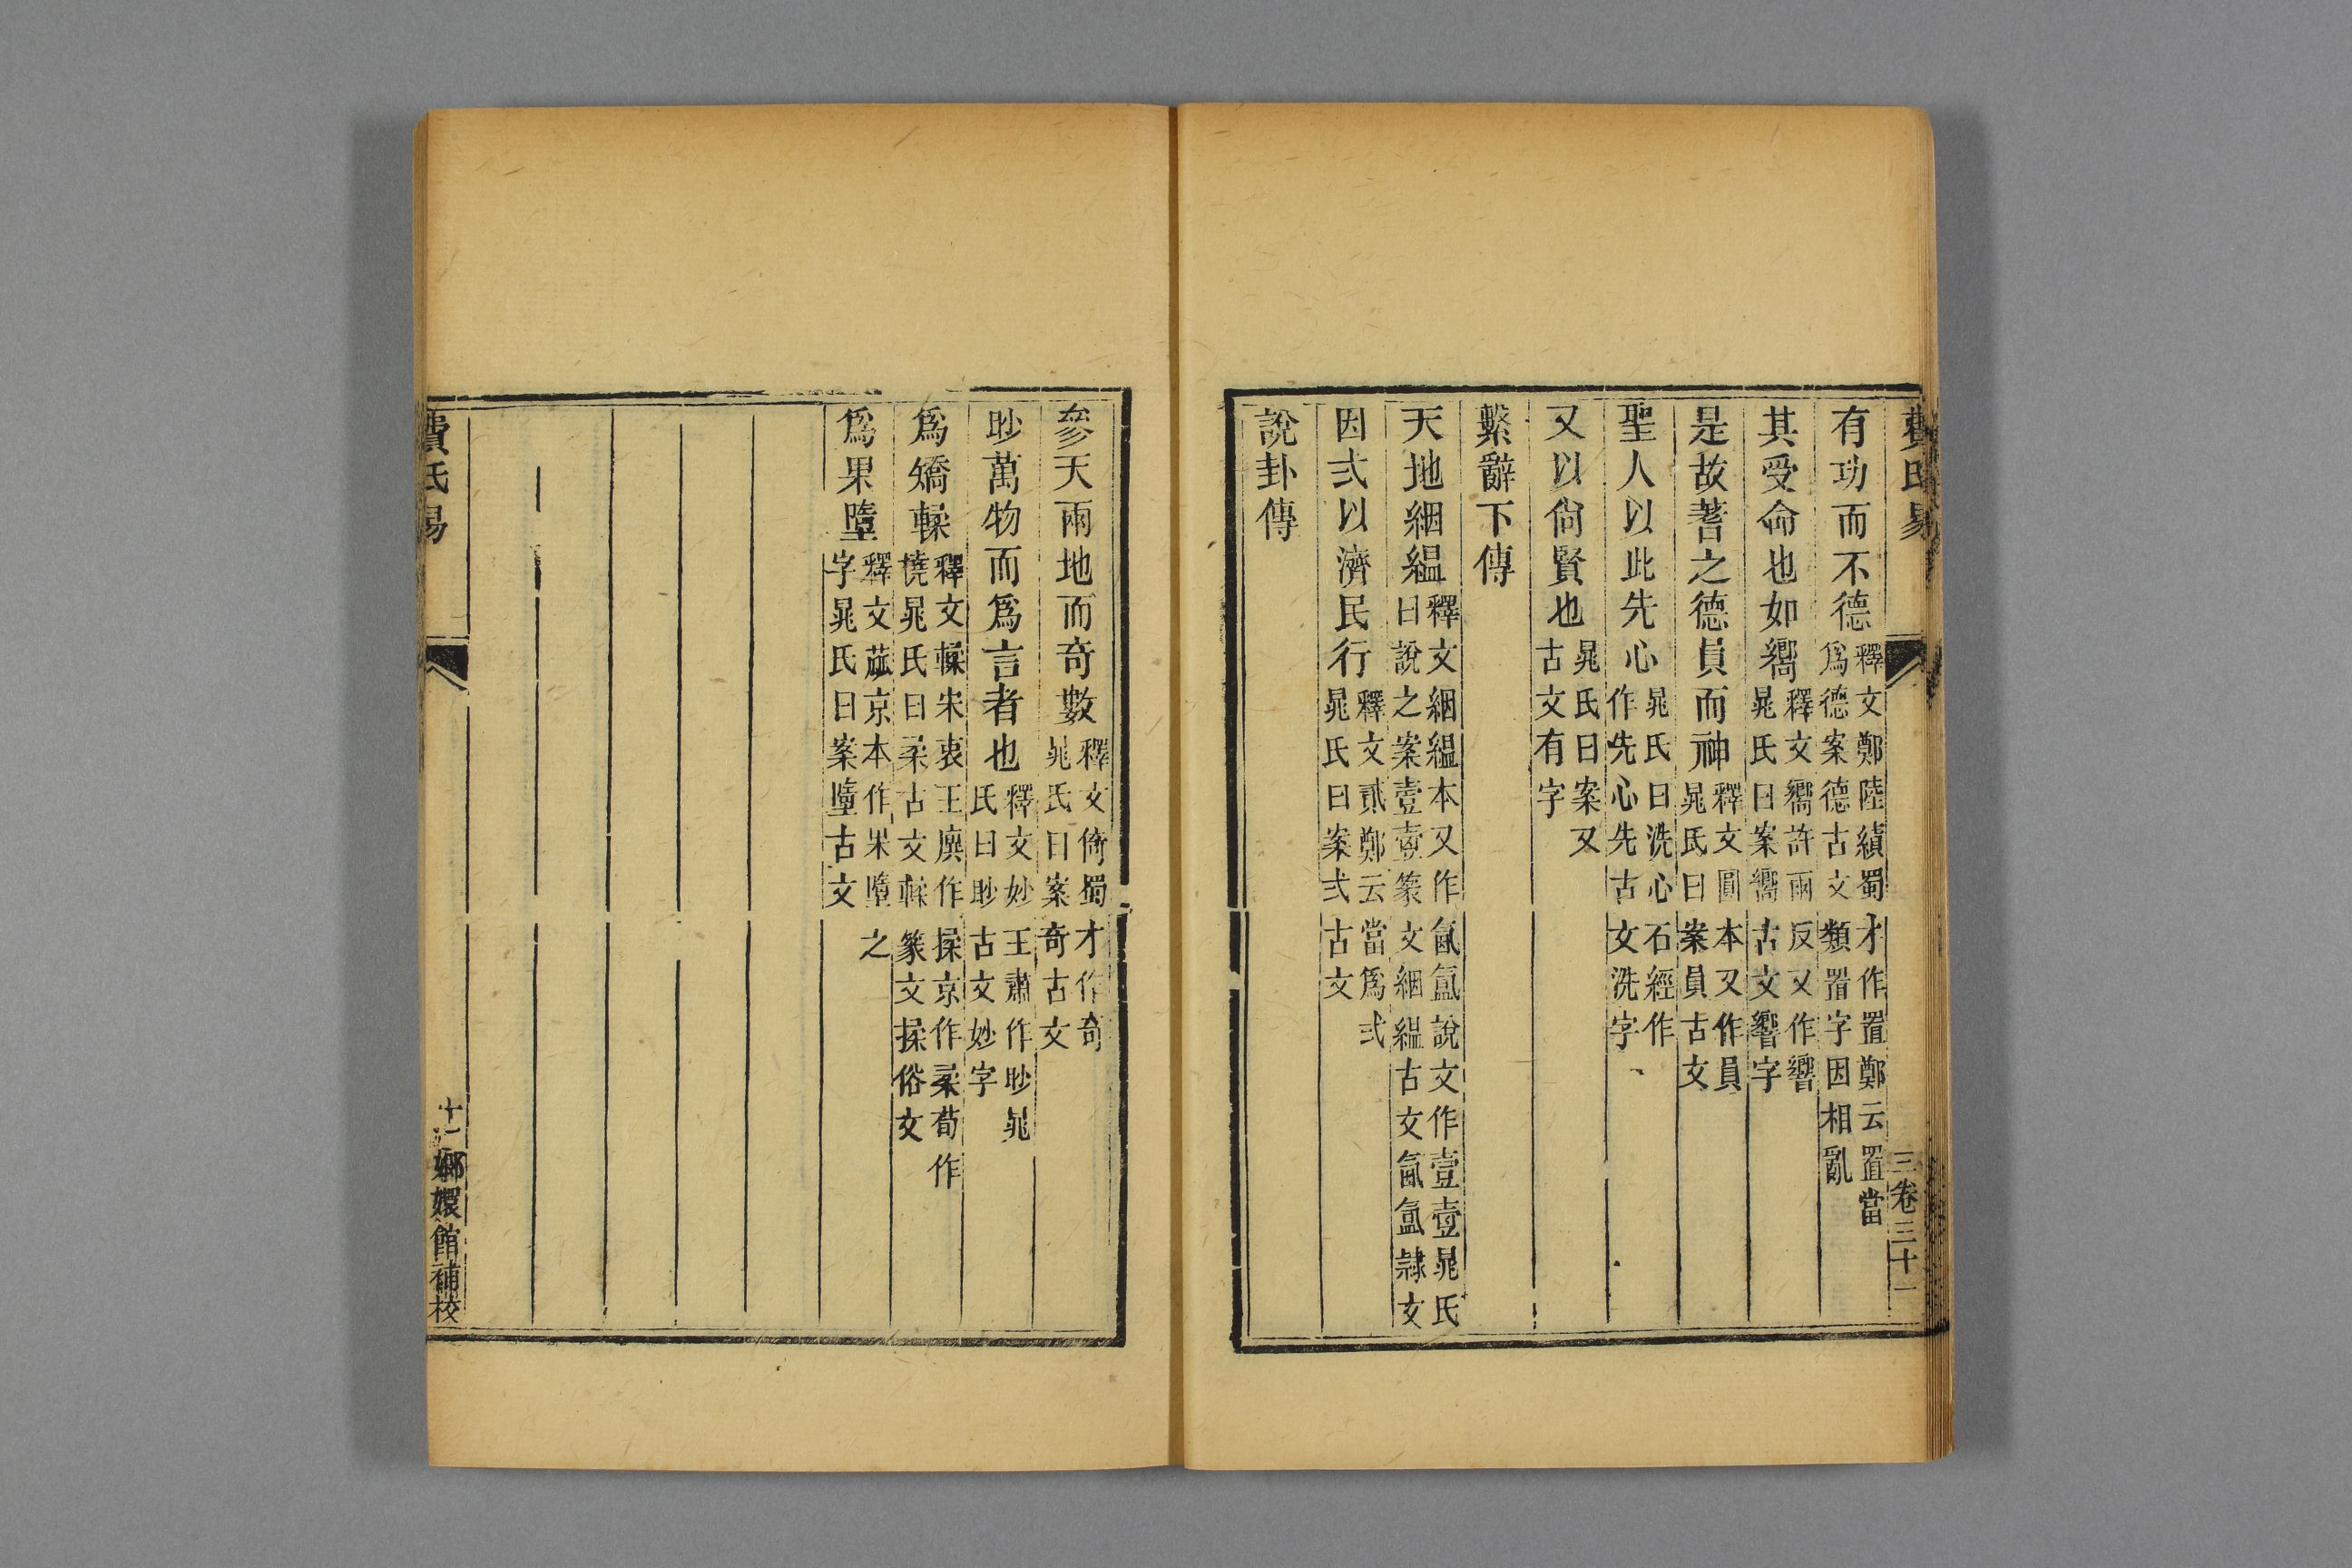 費氏易 三 卷三十一
有功而不德釋文鄭陸績蜀才作置鄭云置當爲德案德古文類置字因相亂
其受命也如嚮釋文嚮許兩反又作響晁氏曰案嚮古文響字
是故蓍之德員而神釋文圓本又作員晁氏曰案員古文
聖人以此先心晁氏曰洗心石經作作先心先古文洗字
又以尙賢也晁氏曰案又古文有字
繫辭下傳
天地絪縕釋文絪縕本又作氤氳說文作壹壹晁氏曰說之案壹壹篆文絪縕古文氤氳隷文
因弍以濟民行釋文貳鄭云當爲弍晁氏曰案弍古文
說卦傳
參天兩地而奇數釋文倚蜀才作奇晁氏曰案奇古文
眇萬物而爲言者也釋文妙王肅作眇晁氏曰眇古文妙字
爲矯輮釋文輮宋衷王廙作揉京作柔荀作橈晁氏曰柔古文輮篆文揉俗文
爲果墮釋文蓏京本作果墮之字晁氏曰案墮古文
費氏易 十一 嫏嬛館補校